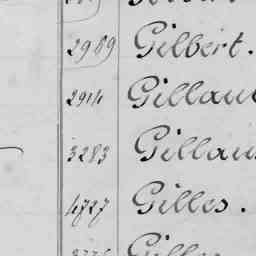 2989 Gilbert.
2914 Gillau
3283 Gillau
4727 Gilles.